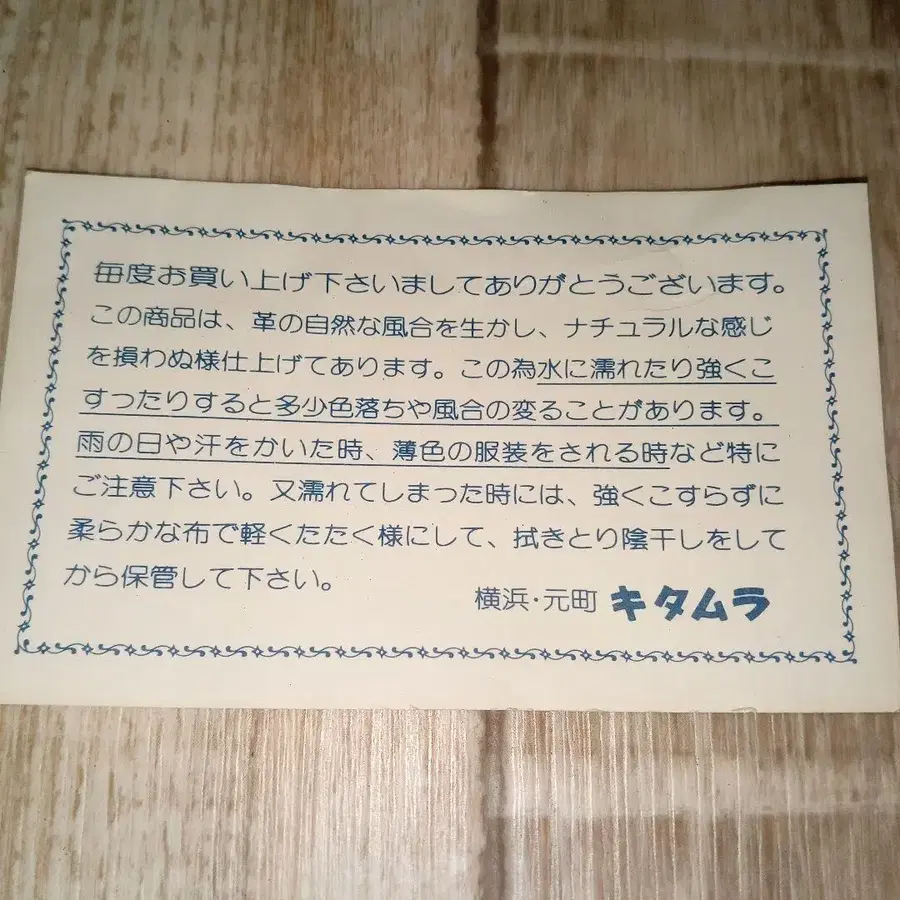 毎度お買い上げ下さいましてありがとうございます。
この商品は、革の自然な風合を生かし、ナチュラルな感じ
を損わぬ様仕上げてあります。この為水に濡れたり強くこ
すったりすると多少色落ちや風合の変ることがあります。
雨の日や汗をかいた時、薄色の服装をされる時など特に
ご注意下さい。又濡れてしまった時には、強くこすらずに
柔らかな布で軽くたたく様にして、拭きとり陰干しをして
から保管して下さい。
横浜・元町 キタムラ